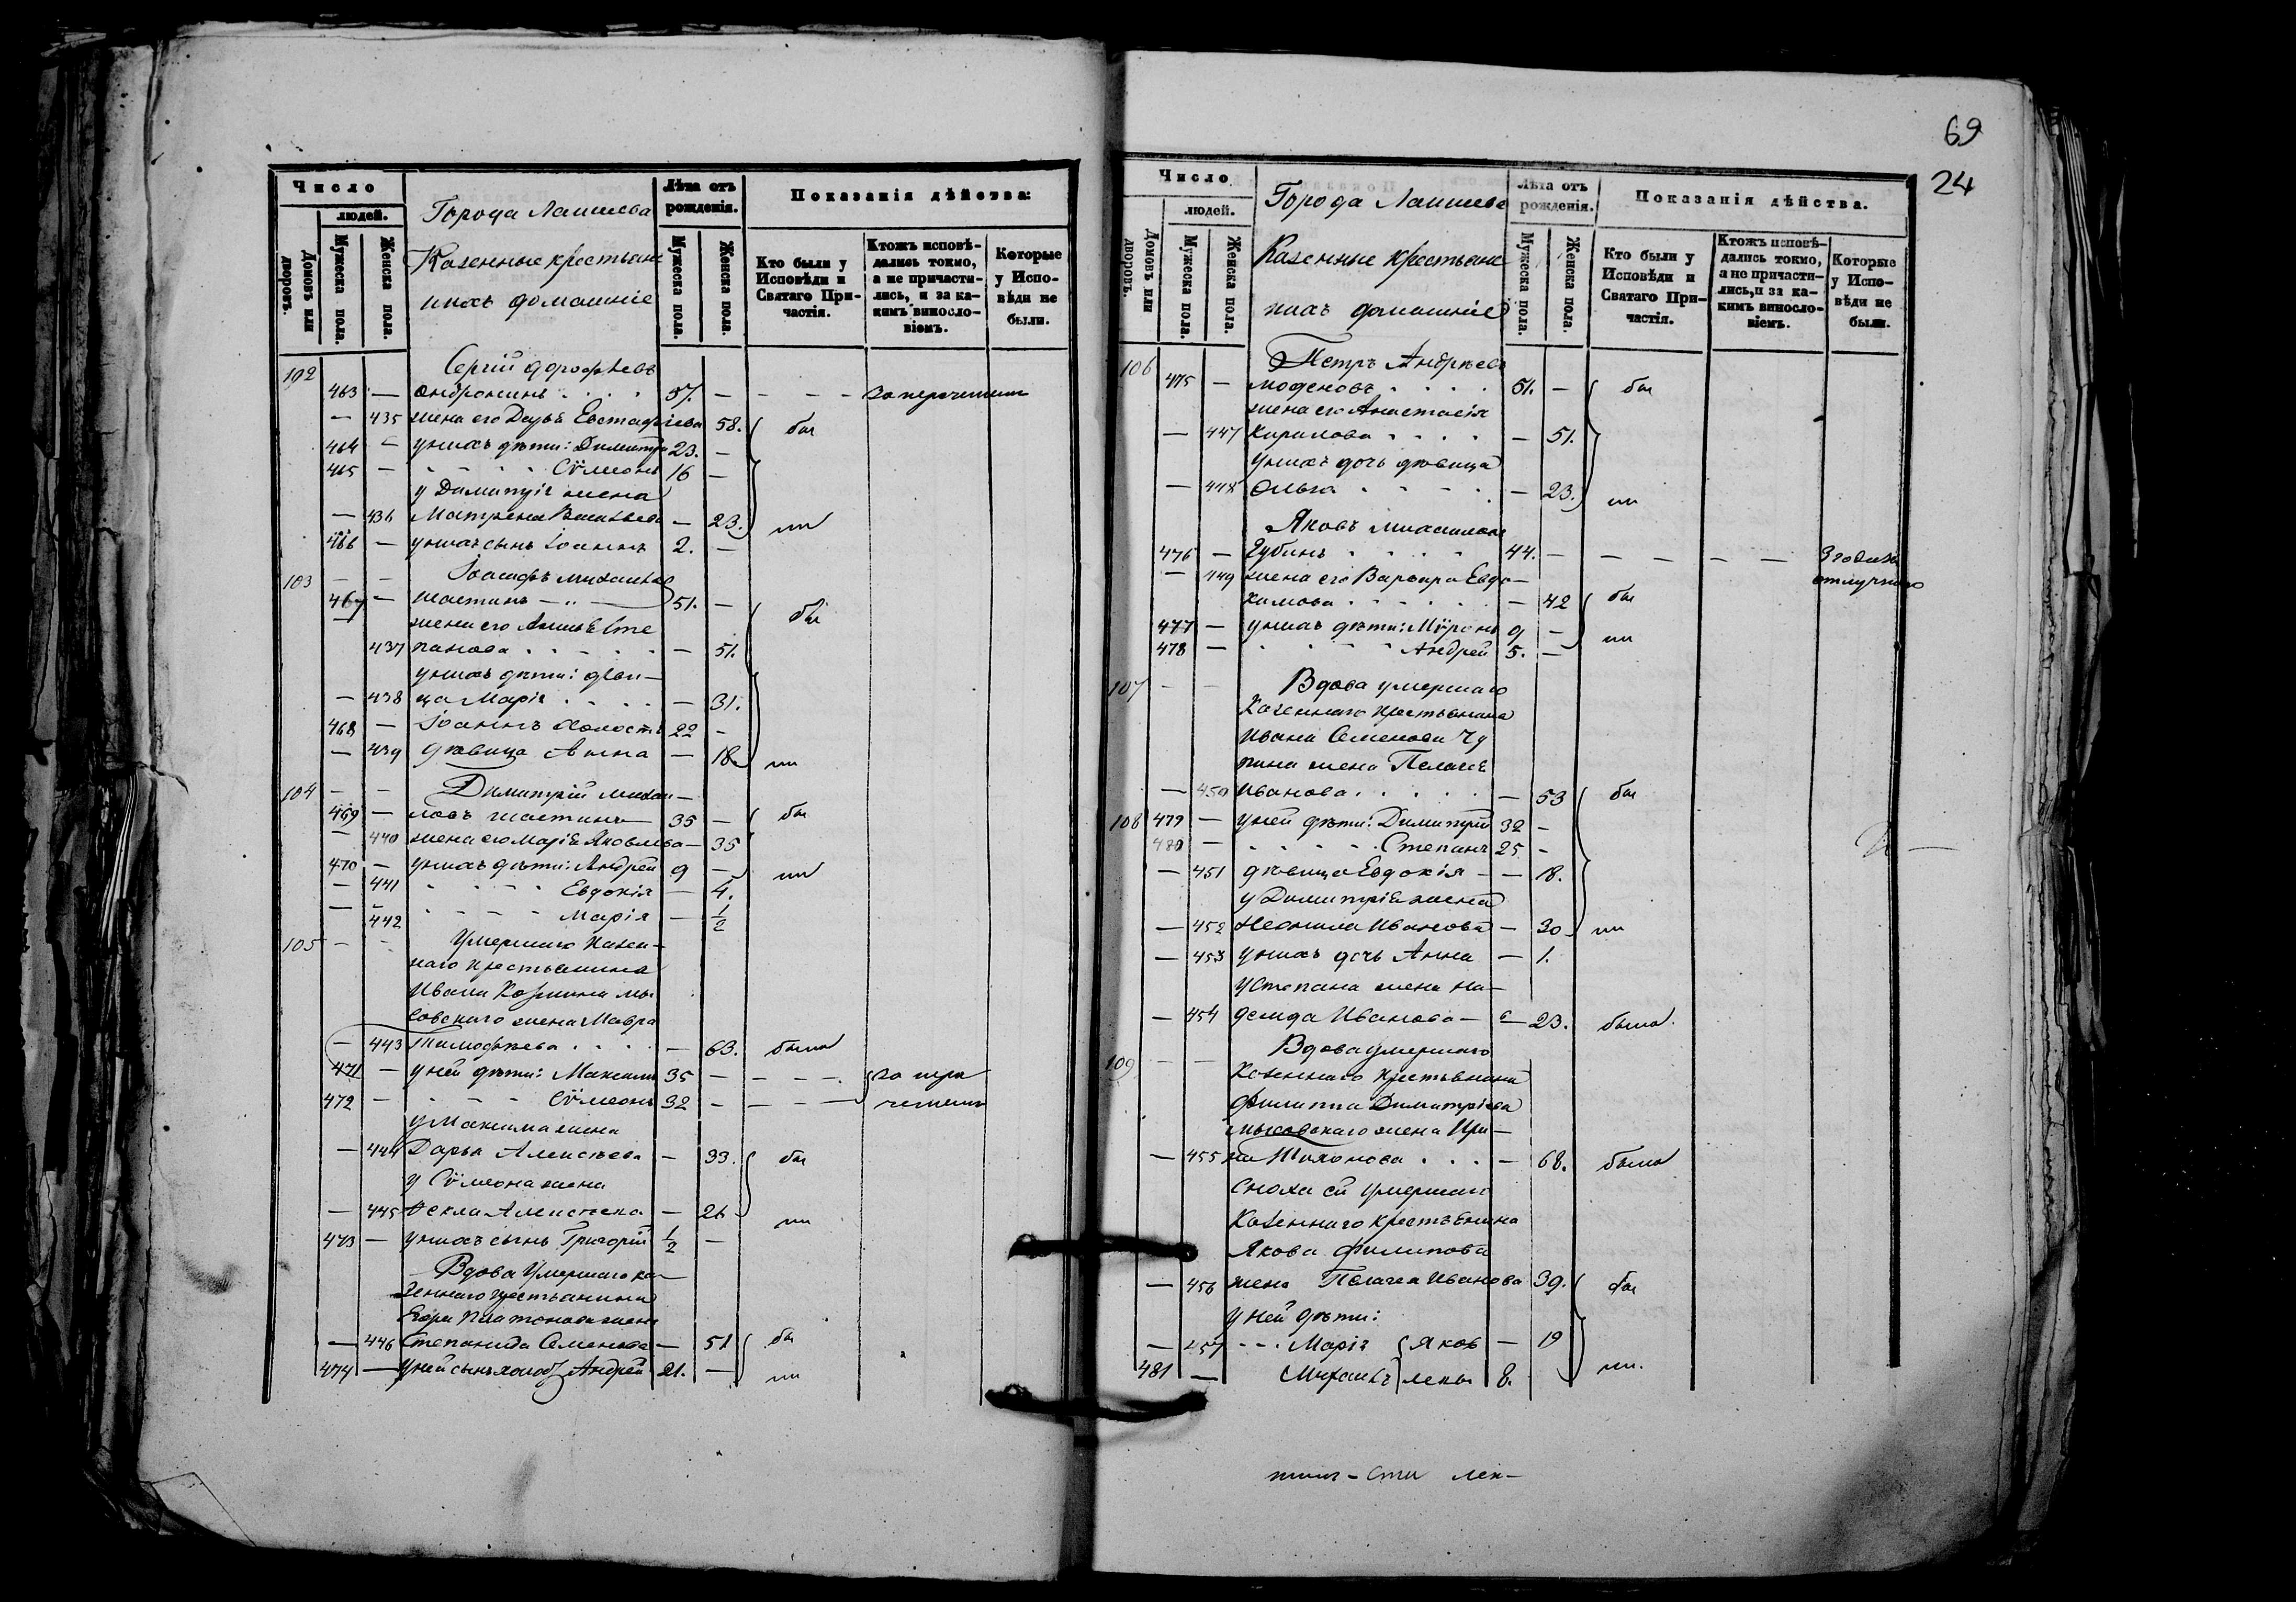 Число
людей.
Домовъ или дворовъ.
Мужеска пола.
Женска пола.
Города Лаишева
Казенные крестьяне
ихъ домашніе
Лѣта отъ рожденія.
Мужеска пола.
Женска пола.
Показанія дѣйства:
Кто были у Исповѣди и Святаго При-
частія.
Ктожъ исповѣ-
дались токмо,
а не причасти-
лись, и за ка-
кимъ виносло-
віемъ.
Которые
у Испо-
вѣди не
были.
102 Сергій Дорофѣевъ
463 — Андронинъ 57. —
— 435 жена его Дарья Евстафіева 58. бы
464 — у нихъ дѣти: Димитрій 23. —
465 — Сѵмеонъ 16 —
у Димитрія жена
— 436 Матрена Васильева — 23. ли
466 — у нихъ сынъ Іоаннъ 2. —
103 — — Іоасафъ Михайловъ
467 — Шастинъ 51. — бы
жена его Анна Сте
437 панова — 51.
у нихъ дѣти: дѣви-
— 438 ца Марія — 31.
468 — Іоаннъ холостъ 22 —
— 439 дѣвица Анна — 18 ли
104 — — Димитрій Михаи-
469 — ловъ Шастинъ 35 — бы
— 440 жена его Марія Яковлева — 35
470 — у нихъ дѣти: Андрей 9 — ли
— 441 Евдокія — 4.
— 442 Марія — 1/2
105 — — Умершаго казен-
наго крестьянина
Ивана Козмина Мы
совскаго жена Мавра
— 443 Тимофѣева — 63. была
471 — у ней дѣти: Максимъ 35 —
472 — Сѵмеонъ 32 —
у Максима жена
— 444 Дарья Алексѣева — 33. бы
у Сѵмеона жена
— 445 Ѳекла Алексѣева — 26 ли
473 — у нихъ сынъ Григорій 1/2 —
Вдова Умершаго ка-
зеннаго крестьянина
Егора Платонова жена
— 446 Степанида Семенова — 51 бы
474 — у ней сынъ холос Андрей 21. — ли
69
24
Число
людей.
Домовъ или дворовъ.
Мужеска пола.
Женска пола.
Города Лаишева
Казенные крестьяне
ихъ домашніе
Лѣта отъ рожденія.
Мужеска пола.
Женска пола.
Показанія дѣйства.
Кто были у
Исповѣди и
Святаго При-
частія.
Ктожъ исповѣ-
дались токмо,
а не причасти-
лись, и за ка-
кимъ виносло-
віемъ.
Которые
у Испо-
вѣди не
были.
106 Петръ Андрѣевъ
475 — Моденовъ 51. — бы
жена его Анастасія
— 447 Кирилова — 51.
у нихъ дочь дѣвица
— 448 Ольга — 23. ли
Яковъ Михаиловъ
476 — Губинъ 44. —
— 449 жена его Варвара Евдо-
кимова — 42 бы
477 — у нихъ дѣти: Мѵронъ 9 — ли
478 — Андрей 5. —
107 — — Вдова умершаго
Казеннаго крестьянина
Ивана Семенова Чу
пина жена Пелагея
— 450 Иванова — 53 бы
108 479 — у ней дѣти: Димитрій 32 —
480 — Степанъ 25 —
— 451 дѣвица Евдокія — 18.
у Димитрія жена
— 452 Неонила Иванова — 30 ли
— 453 у нихъ дочь Анна — 1.
у Степана жена На-
— 454 дежда Иванова — 23. была
109 — — Вдова умершаго
Казеннаго крестьянина
Филиппа Димитріева
Мысовскаго жена Ири-
— 455 на Тихонова — 68. была
Сноха ей умершаго
Казеннаго крестьянина
Якова Филипова
— 456 жена Пелагея Иванова 39. бы
у ней дѣти:
— 457 Марія Яков — 19
481 — Михаилъ левы 8. ли.